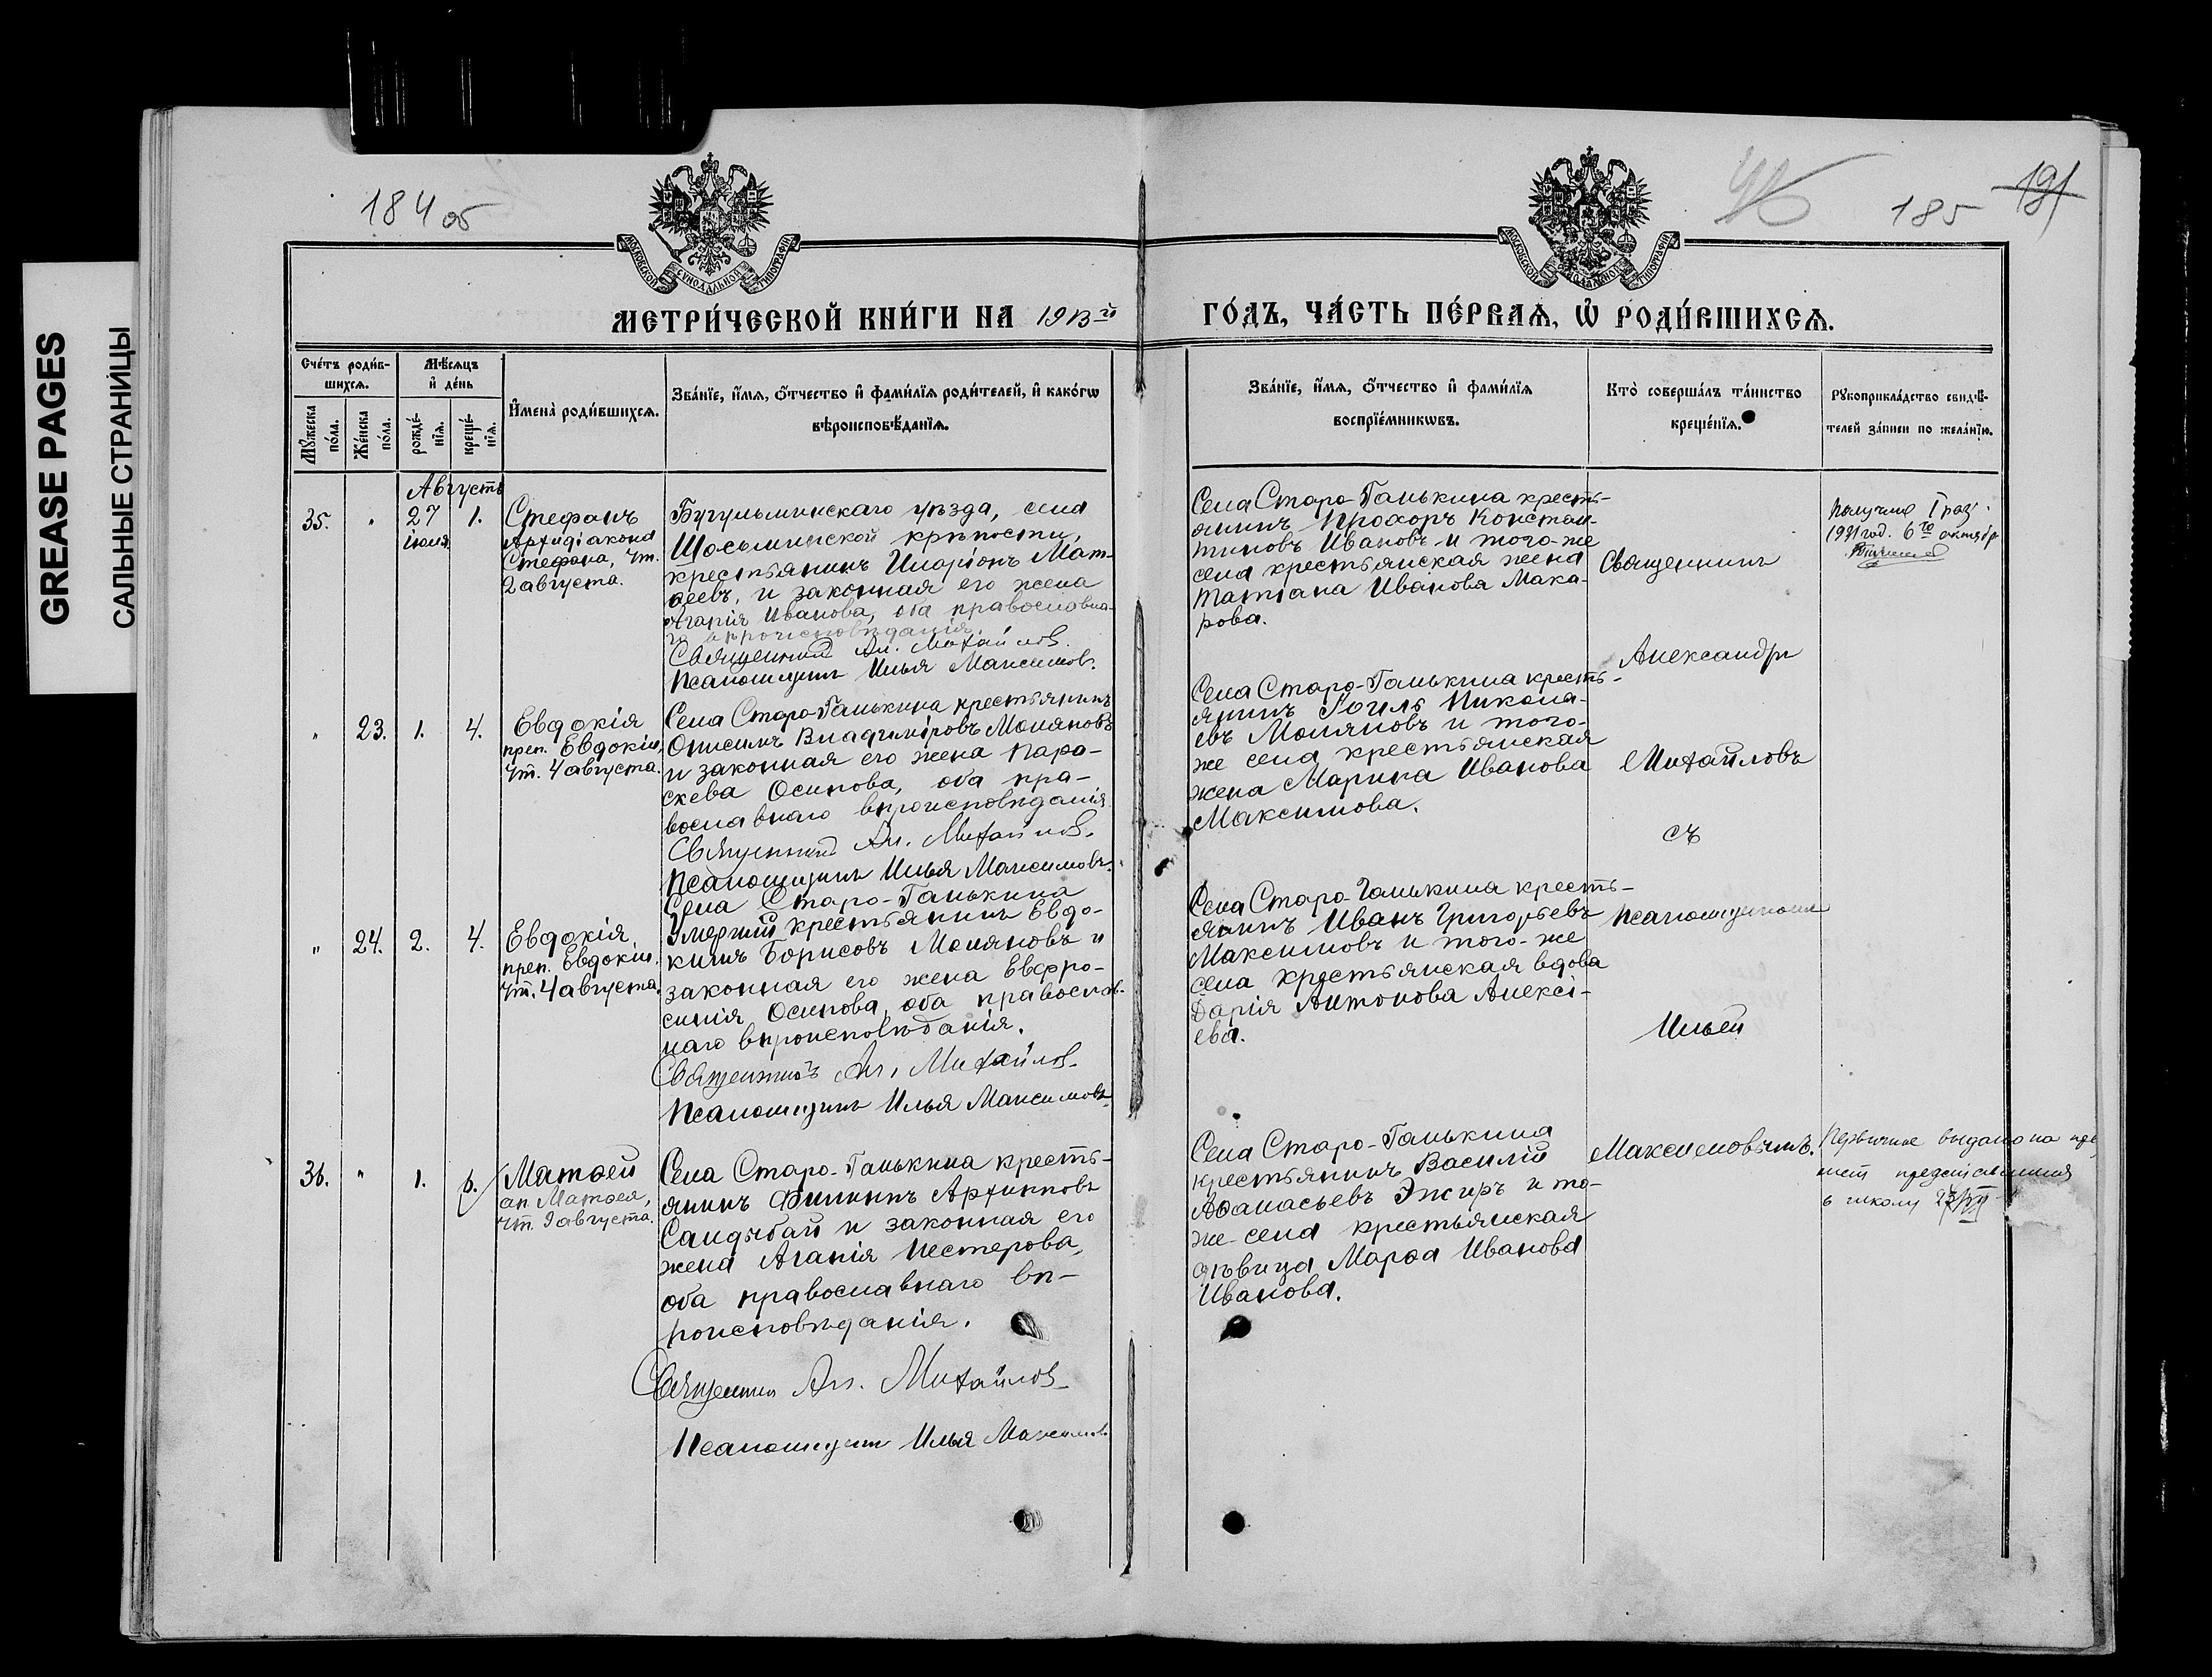 GREASE PAGES
САЛЬНЫЕ СТРАНИЦЫ
184 об
185
191
МОСКОВСКОЙ СѴНОДАЛЬНОЙ ТИПОГРАФІИ
МОСКОВСКОЙ СѴНОДАЛЬНОЙ ТИПОГРАФІИ
МЕТРИ́ЧЕСКОЙ КНИ́ГИ НА 1913й ГО́ДЪ, ЧА́СТЬ ПЕ́РВАѦ, Ѡ҆ РОДИ́ВШИХСѦ.
Сче́тъ роди́в-
шихсѧ.
Мꙋ́жеска по́ла.
Же́нска по́ла.
Мѣ́сѧцъ
и҆ де́нь
рожде́-
нїѧ.
креще́-
нїѧ.
И҆мена̀ роди́вшихсѧ.
Зва́нїе, и҆́мѧ, ѻ҆́тчество и҆ фами́лїѧ роди́телей, и҆ како́гѡ
вѣроисповѣ́данїѧ.
Зва́нїе, и҆́мѧ, ѻ҆́тчество и҆ фами́лїѧ
воспрїе́мникѡвъ.
Кто̀ соверша́лъ та́инство
креще́нїѧ.
Рꙋкоприкла́дство свидѣ́-
телей за́писи по жела́нїю.
Августъ
35.
"
27
іюля
1.
Стефанъ
Архидіакона
Стефана, чт.
2 августа.
Бугульминскаго уѣзда, села
Шосьминской крѣпости,
крестьянинъ Иларіонъ Мат-
ѳеевъ, и законная его жена
Агарія Иванова, оба православна-
го вѣроисповѣданія.
Священникъ Ал. Михайлов.
Псаломщикъ Илья Максимов.
Села Старо-Ганькина кресть-
янинъ Прохоръ Констан-
тиновъ Ивановъ и того-же
села крестьянская жена
Татіана Иванова Мака-
рова.
Священникъ
Александръ
Михайловъ
съ
псаломщикомъ
Ильей
Максимовымъ.
Получило I раз
1931 год. 6го октябр
"
23.
1.
4.
Евдокія
преп. Евдокіи,
чт. 4 августа.
Села Старо-Ганькина крестьянинъ
Онисимъ Владиміровъ Моляновъ
и законная его жена Пара-
скева Осипова, оба пра-
вославнаго вѣроисповѣданія
Священникъ Ал. Михайлов.
Псаломщикъ Илья Максимовъ.
Села Старо-Ганькина кресть-
янинъ Іоиль Никола-
евъ Моляновъ и того-
же села крестьянская
жена Марина Иванова
Максимова.
"
24.
2.
4.
Евдокія
преп. Евдокіи.
чт. 4 августа.
Села Старо-Ганькина
Умершій крестьянинъ Евдо-
кимъ Борисовъ Моляновъ и
законная его жена Евфро-
синія Осипова, оба православ-
наго вѣроисповѣданія.
Священникъ Ал. Михайлов.
Псаломщикъ Илья Максимовъ
Села Старо-Ганькина кресть-
янинъ Иванъ Григорьевъ
Максимовъ и того-же
села крестьянская вдова
Дарія Антонова Алексі-
ева.
36.
"
1.
6.
Матѳей
ап. Матѳея,
чт. 9 августа.
Села Старо-Ганькина кресть-
янинъ Филиппъ Архипповъ
Сандыбай и законная его
жена Агапія Нестерова,
оба православнаго вѣ-
роисповѣданія.
Священникъ Ал. Михайлов
Псаломщикъ Илья Максимовъ
Села Старо-Ганькина
крестьянинъ Василій
Аѳанасьевъ Энсиръ и то-
же села крестьянская
дѣвица Марѳа Иванова
Иванова.
Первичное выдано на
представления
в школу